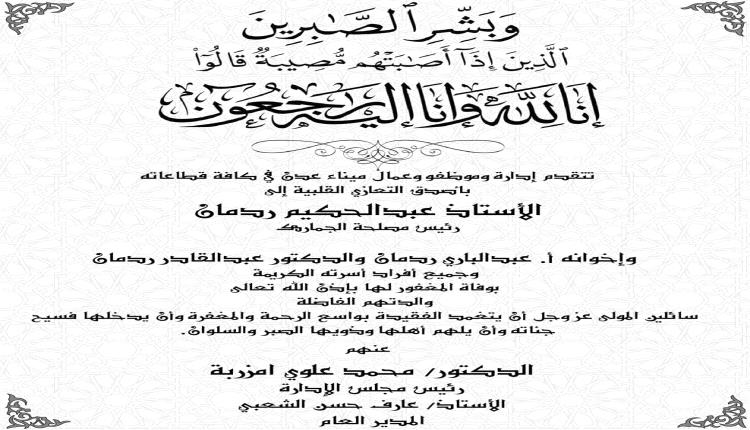 وَبَشِّرِ ٱلصَّٰبِرِينَ
ٱلَّذِينَ إِذَآ أَصَٰبَتْهُم مُّصِيبَةٌ قَالُوٓا۟
إنا لله وإنا إليه راجعون
تتقدم إدارة وموظفو وعمال ميناء عدن في كافة قطاعاته
بأصدق التعازي القلبية إلى
الأستاذ عبدالحكيم ردمان
رئيس مصلحة الجمارك
وإخوانه أ. عبدالباري ردمان والدكتور عبدالقادر ردمان
وجميع أفراد أسرته الكريمة
بوفاة المغفور لها بإذن الله تعالى
والدتهم الفاضلة
سائلين المولى عز وجل أن يتغمد الفقيدة بواسع الرحمة والمغفرة وأن يدخلها فسيح
جناته وأن يلهم أهلها وذويها الصبر والسلوان.
عنهم
الدكتور/ محمد علوي امزربة
رئيس مجلس الإدارة
الأستاذ/ عارف حسن الشعبي
المدير العام